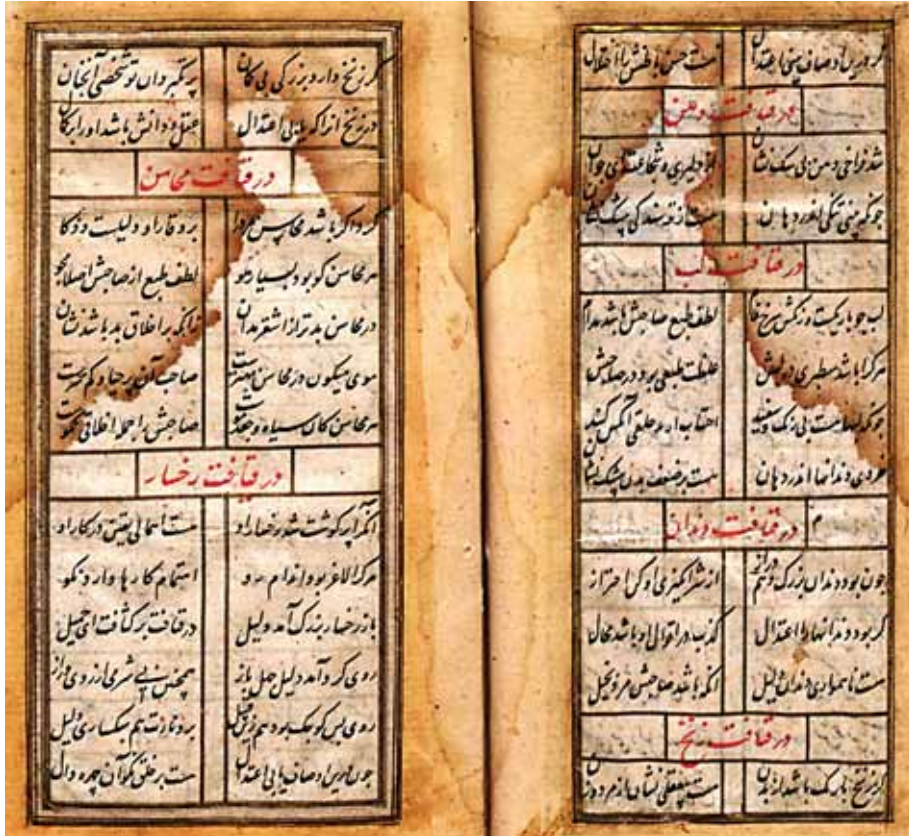 گر درین اوصاف بینی اعتدال هست حسن باطنش را اختلال
در قیافت دهن
شد فراخی دهن بی شک نشان از دلیری و شجاعت ای جوان
چونکه بینی تنگی اندر دهان هست از ترسندگی بیشک نشان
در قیافت لب
لب چو باریکست و رنگش سرخ فام لطف طبع صاحبش باشد مدام
هرکرا باشد سطبری در لبش غلظت طبعی بود در صاحبش
چونکه لبها هست بی رنگ و سفید اجتناب از خلق آنکس کنید
خردی دندانها اندر دهان هست بر ضعف بدن بیشک نشان
در قیافت دندان
چون بود دندان بزرگ و هم دراز از شرانگیزی او کن احتراز
گر بود دندانها را اعتدال کذب در اقوال او باشد محال
هست ناهمواری دندان دلیل آنکه باشد صاحبش مرد بخیل
در قیافت زنخ
گر زنخ باریک باشد از بدن هست بیعقلی نشان از مرد و زن
گر زنخ دارد بزرگی بی گمان پر تکبر دان تو شخصی آنچنان
در زنخ آنرا که بینی اعتدال عقل و دانش باشد او را بر کمال
در قیافت محاسن
گرد اگر باشد محاسن مرد را بر وقار او دلیلست و ذکا
هر محاسن کو بود بسیار مو لطف طبع از صاحبش اصلا مجو
در محاسن بدتر از اشقر مدان زانکه بر اخلاق بد باشد نشان
موی میگون در محاسن بهترست صاحب آن پر حیا و کم
هر محاسن کان سیاه و صاحبش را جمله اخلاقی نکوست
در قیافت رخسار
آنکه پر گوشت شد رخسار او هست اهمالی یقین در کار او
هرکرا لاغر بود اندام رو اهتمام کارها دارد نکو
باز رخسار بزرگ آمد دلیل در قیافت بر کثافت ای جمیل
روی گرد آمد دلیل جهل باز همچنین بی شرمی از روی دراز
روی بس کوچک بود هم زین قبیل بر دنائت هم سبکساری دلیل
چون درین اوصاف یابی اعتدال هست بر خلق نکو آن چهره دال